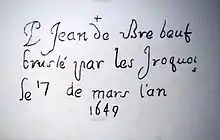 P Jean de Bre beuf
bruslé par les Iroquois
le 17 de mars l'an
1649